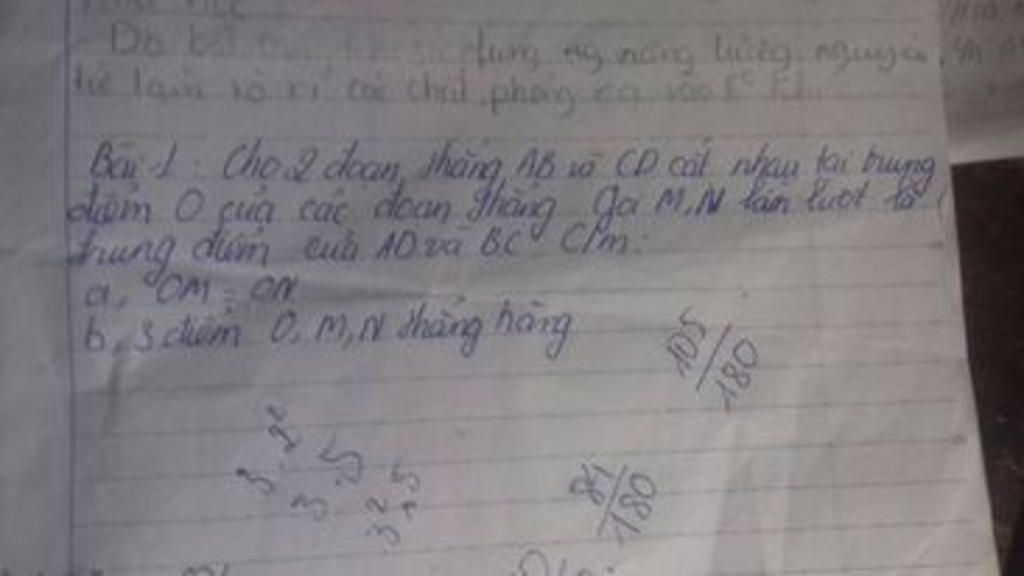 dụng ng năng lượng nguyên
tử làm rò rỉ các chất phóng xạ vào
Bài 1: Cho 2 đoạn thẳng AB và CD cắt nhau tại trung
điểm O của các đoạn thẳng. Gọi M, N lần lượt là
trung điểm của AD và BC. C/m:
a, OM = ON
b, 3 điểm O, M, N thẳng hàng
105/180
3 . 2²
3 . 5
3² . 5
84/180